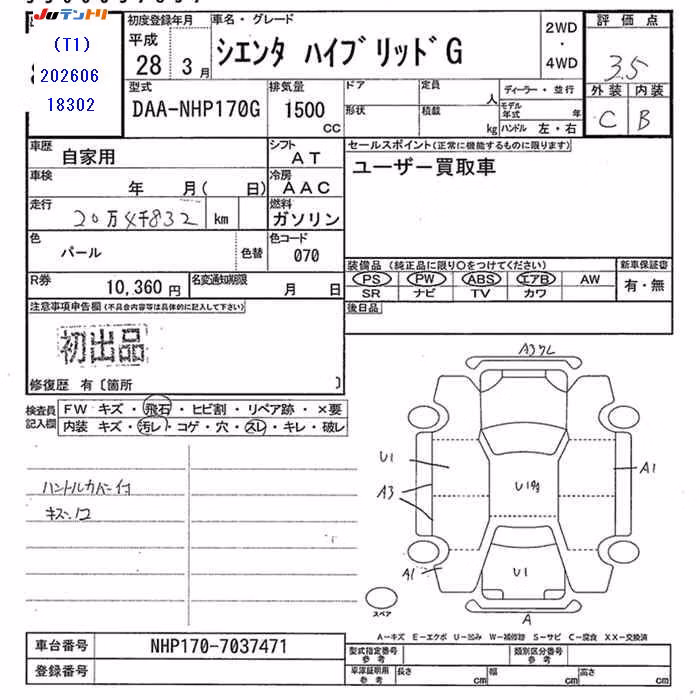 Juテントリ
(T1)
202606
18302
初度登録年月
平成
28 3月
車名・グレード
シエンタ ハイブリッド G
2WD
・
4WD
評価点
3.5
外装 内装
C B
型式
DAA-NHP170G
排気量
1500
CC
ドア
形状
定員
人
積載
kg
ディーラー・並行
モデル年式 年
ハンドル 左・右
車歴
自家用
シフト
AT
セールスポイント(正常に機能するものに限ります)
ユーザー買取車
車検
年 月( 日)
冷房
AAC
走行
20万4千832 km
燃料
ガソリン
色
パール
色替
色コード
070
装備品(純正品に限り○をつけてください)
PS PW ABS エアB AW
SR ナビ TV カワ
新車保証書
有・無
R券
10,360円
名変通知期限
月 日
後日品
注意事項申告欄(不具合内容等は具体的に記入して下さい)
初出品
修復歴 有〔箇所 〕
検査員記入欄
FW キズ・飛石・ヒビ割・リペア跡・×要
内装 キズ・汚レ・コゲ・穴・スレ・キレ・破レ
ハンドルカバー付
A3
U1
A3
A1
U1
A1
U1
A
スペア
A−キズ E−エクボ U−凹み W−補修跡 S−サビ C−腐食 XX−交換済
車台番号
NHP170-7037471
登録番号
型式指定番号
参考
類別区分番号
参考
車庫証明用
参考
長さ cm
幅 cm
高さ cm